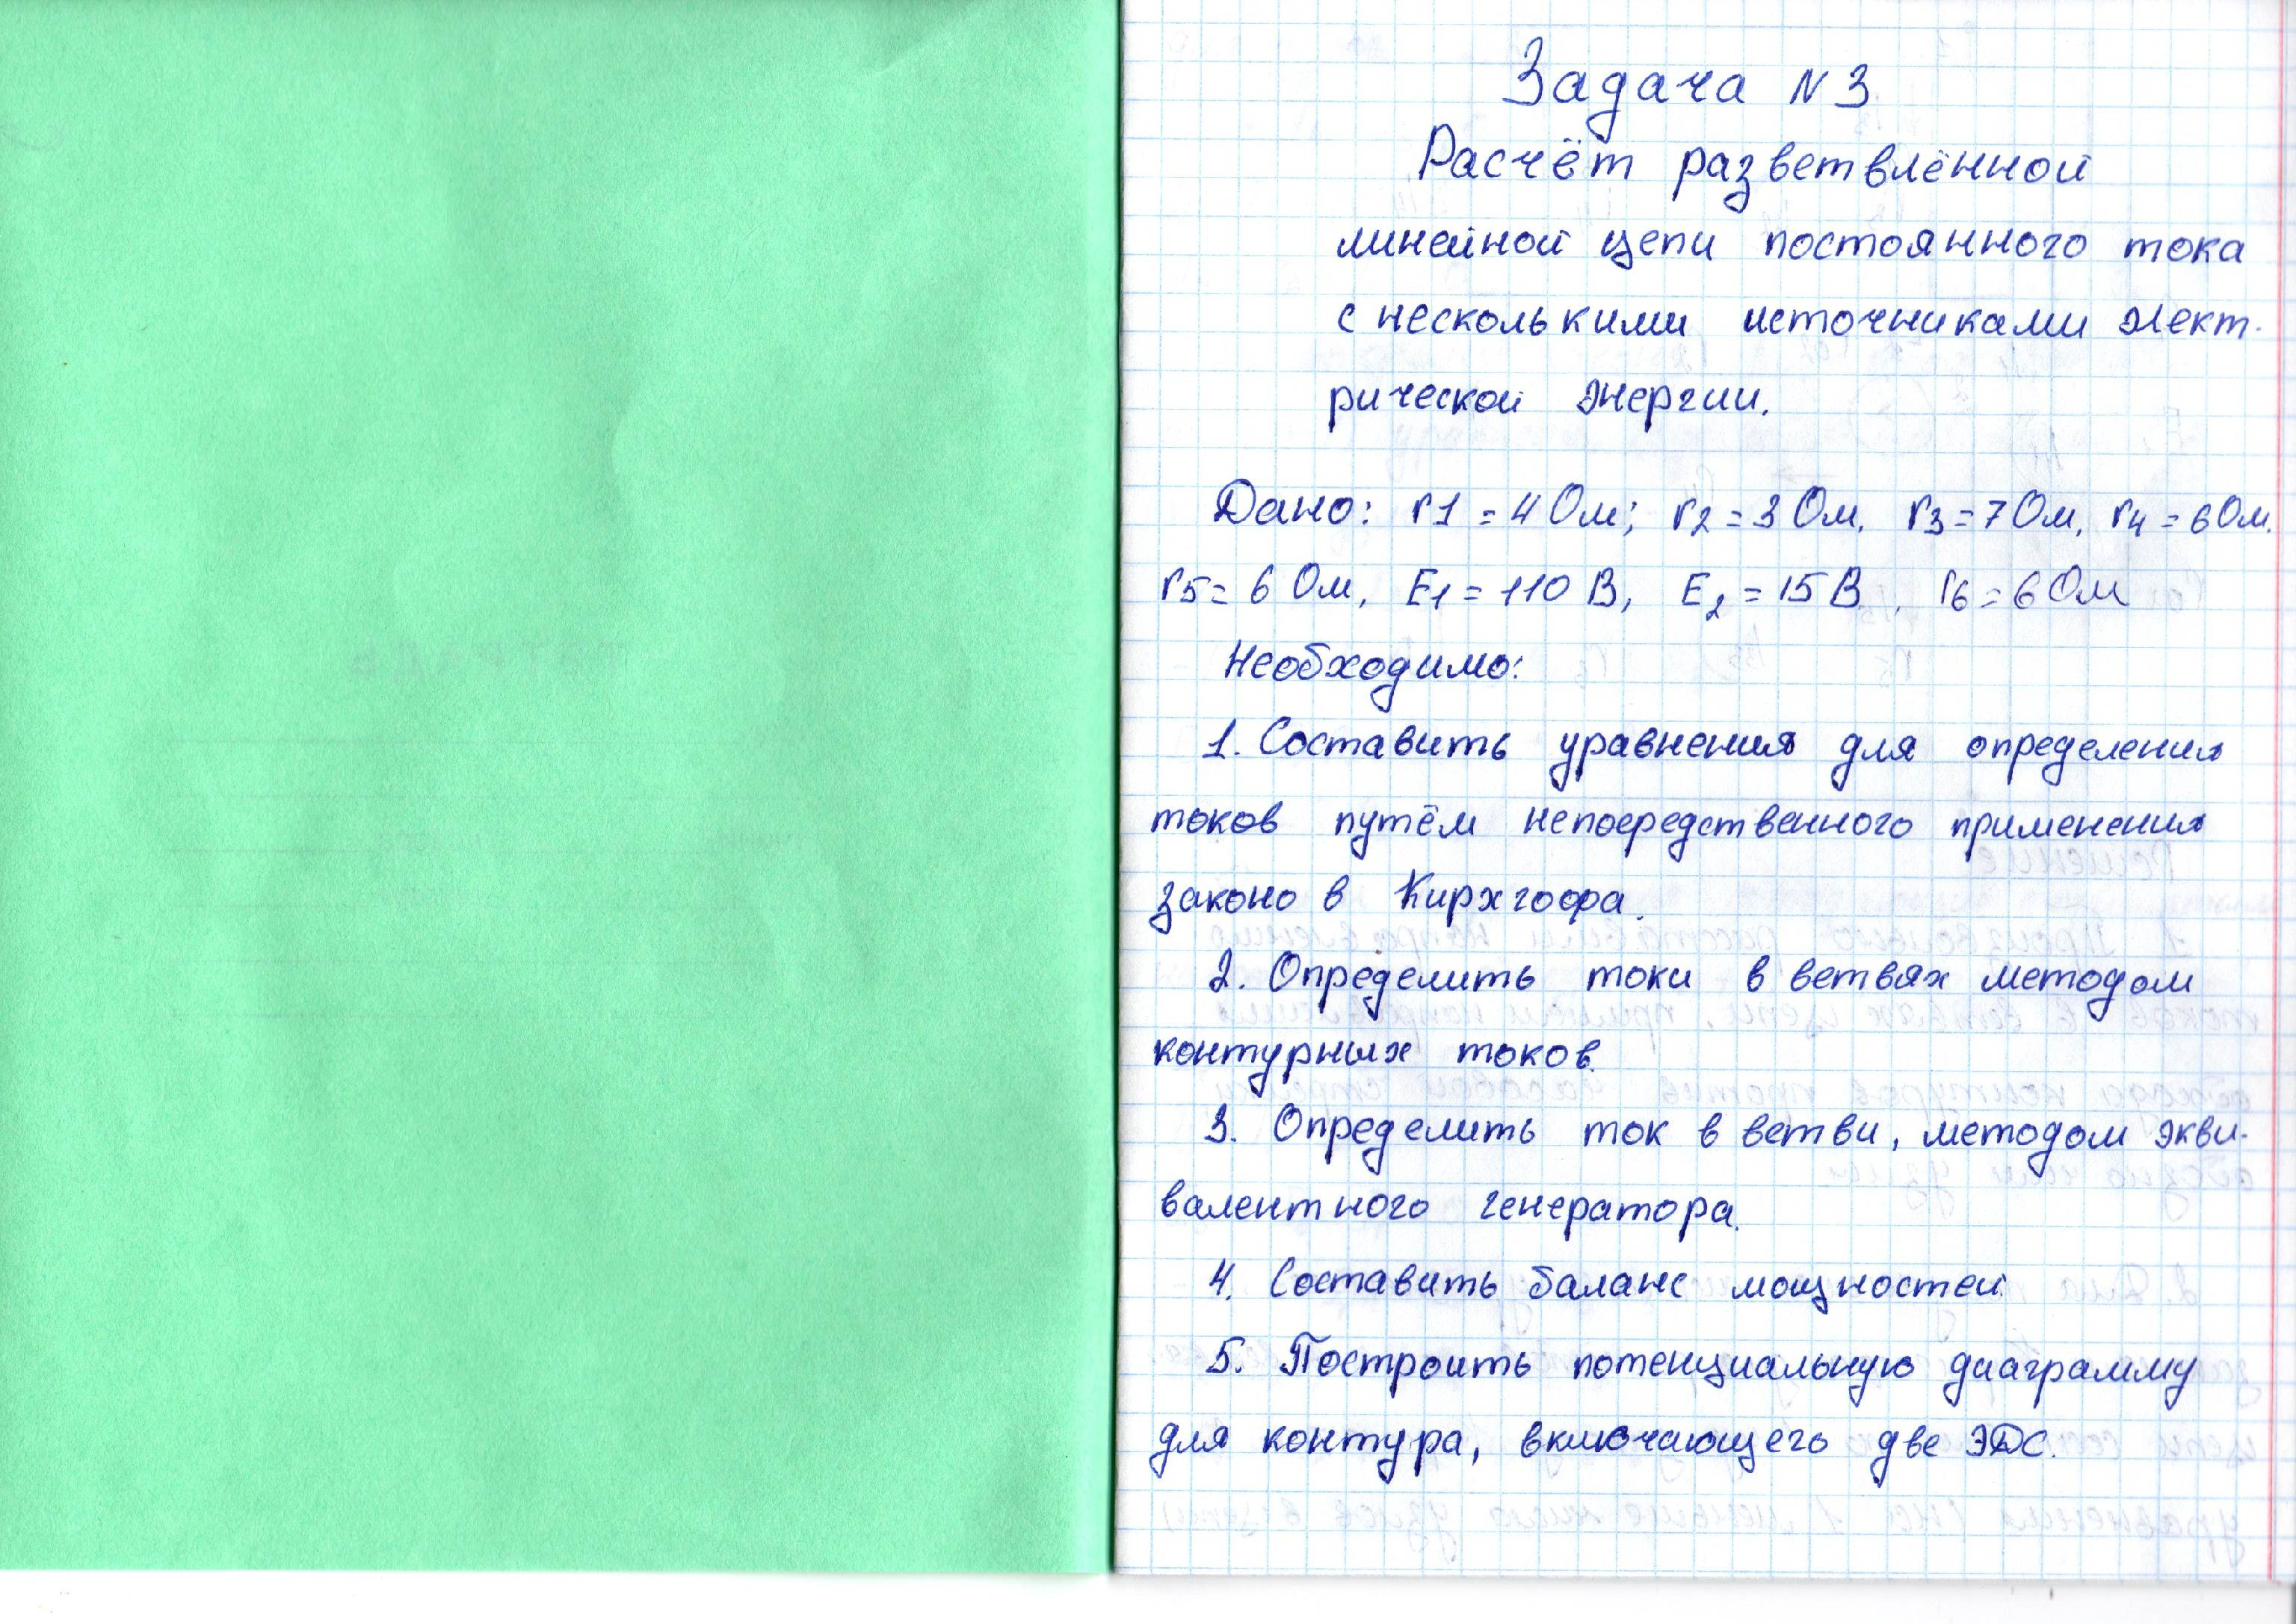 Задача N 3
Расчёт разветвлённой
линейной цепи постоянного тока
с несколькими источниками элект-
рической энергии.
Дано: r1 = 4 Ом; r2 = 3 Ом, r3 = 7 Ом, r4 = 6 Ом.
r5 = 6 Ом, E1 = 110 В, E2 = 15 В, r6 = 6 Ом
Необходимо:
1. Составить уравнения для определения
токов путём непосредственного применения
законов Кирхгофа.
2. Определить токи в ветвях методом
контурных токов.
3. Определить ток в ветви, методом экви-
валентного генератора.
4. Составить баланс мощностей.
5. Построить потенциальную диаграмму
для контура, включающего две ЭДС.